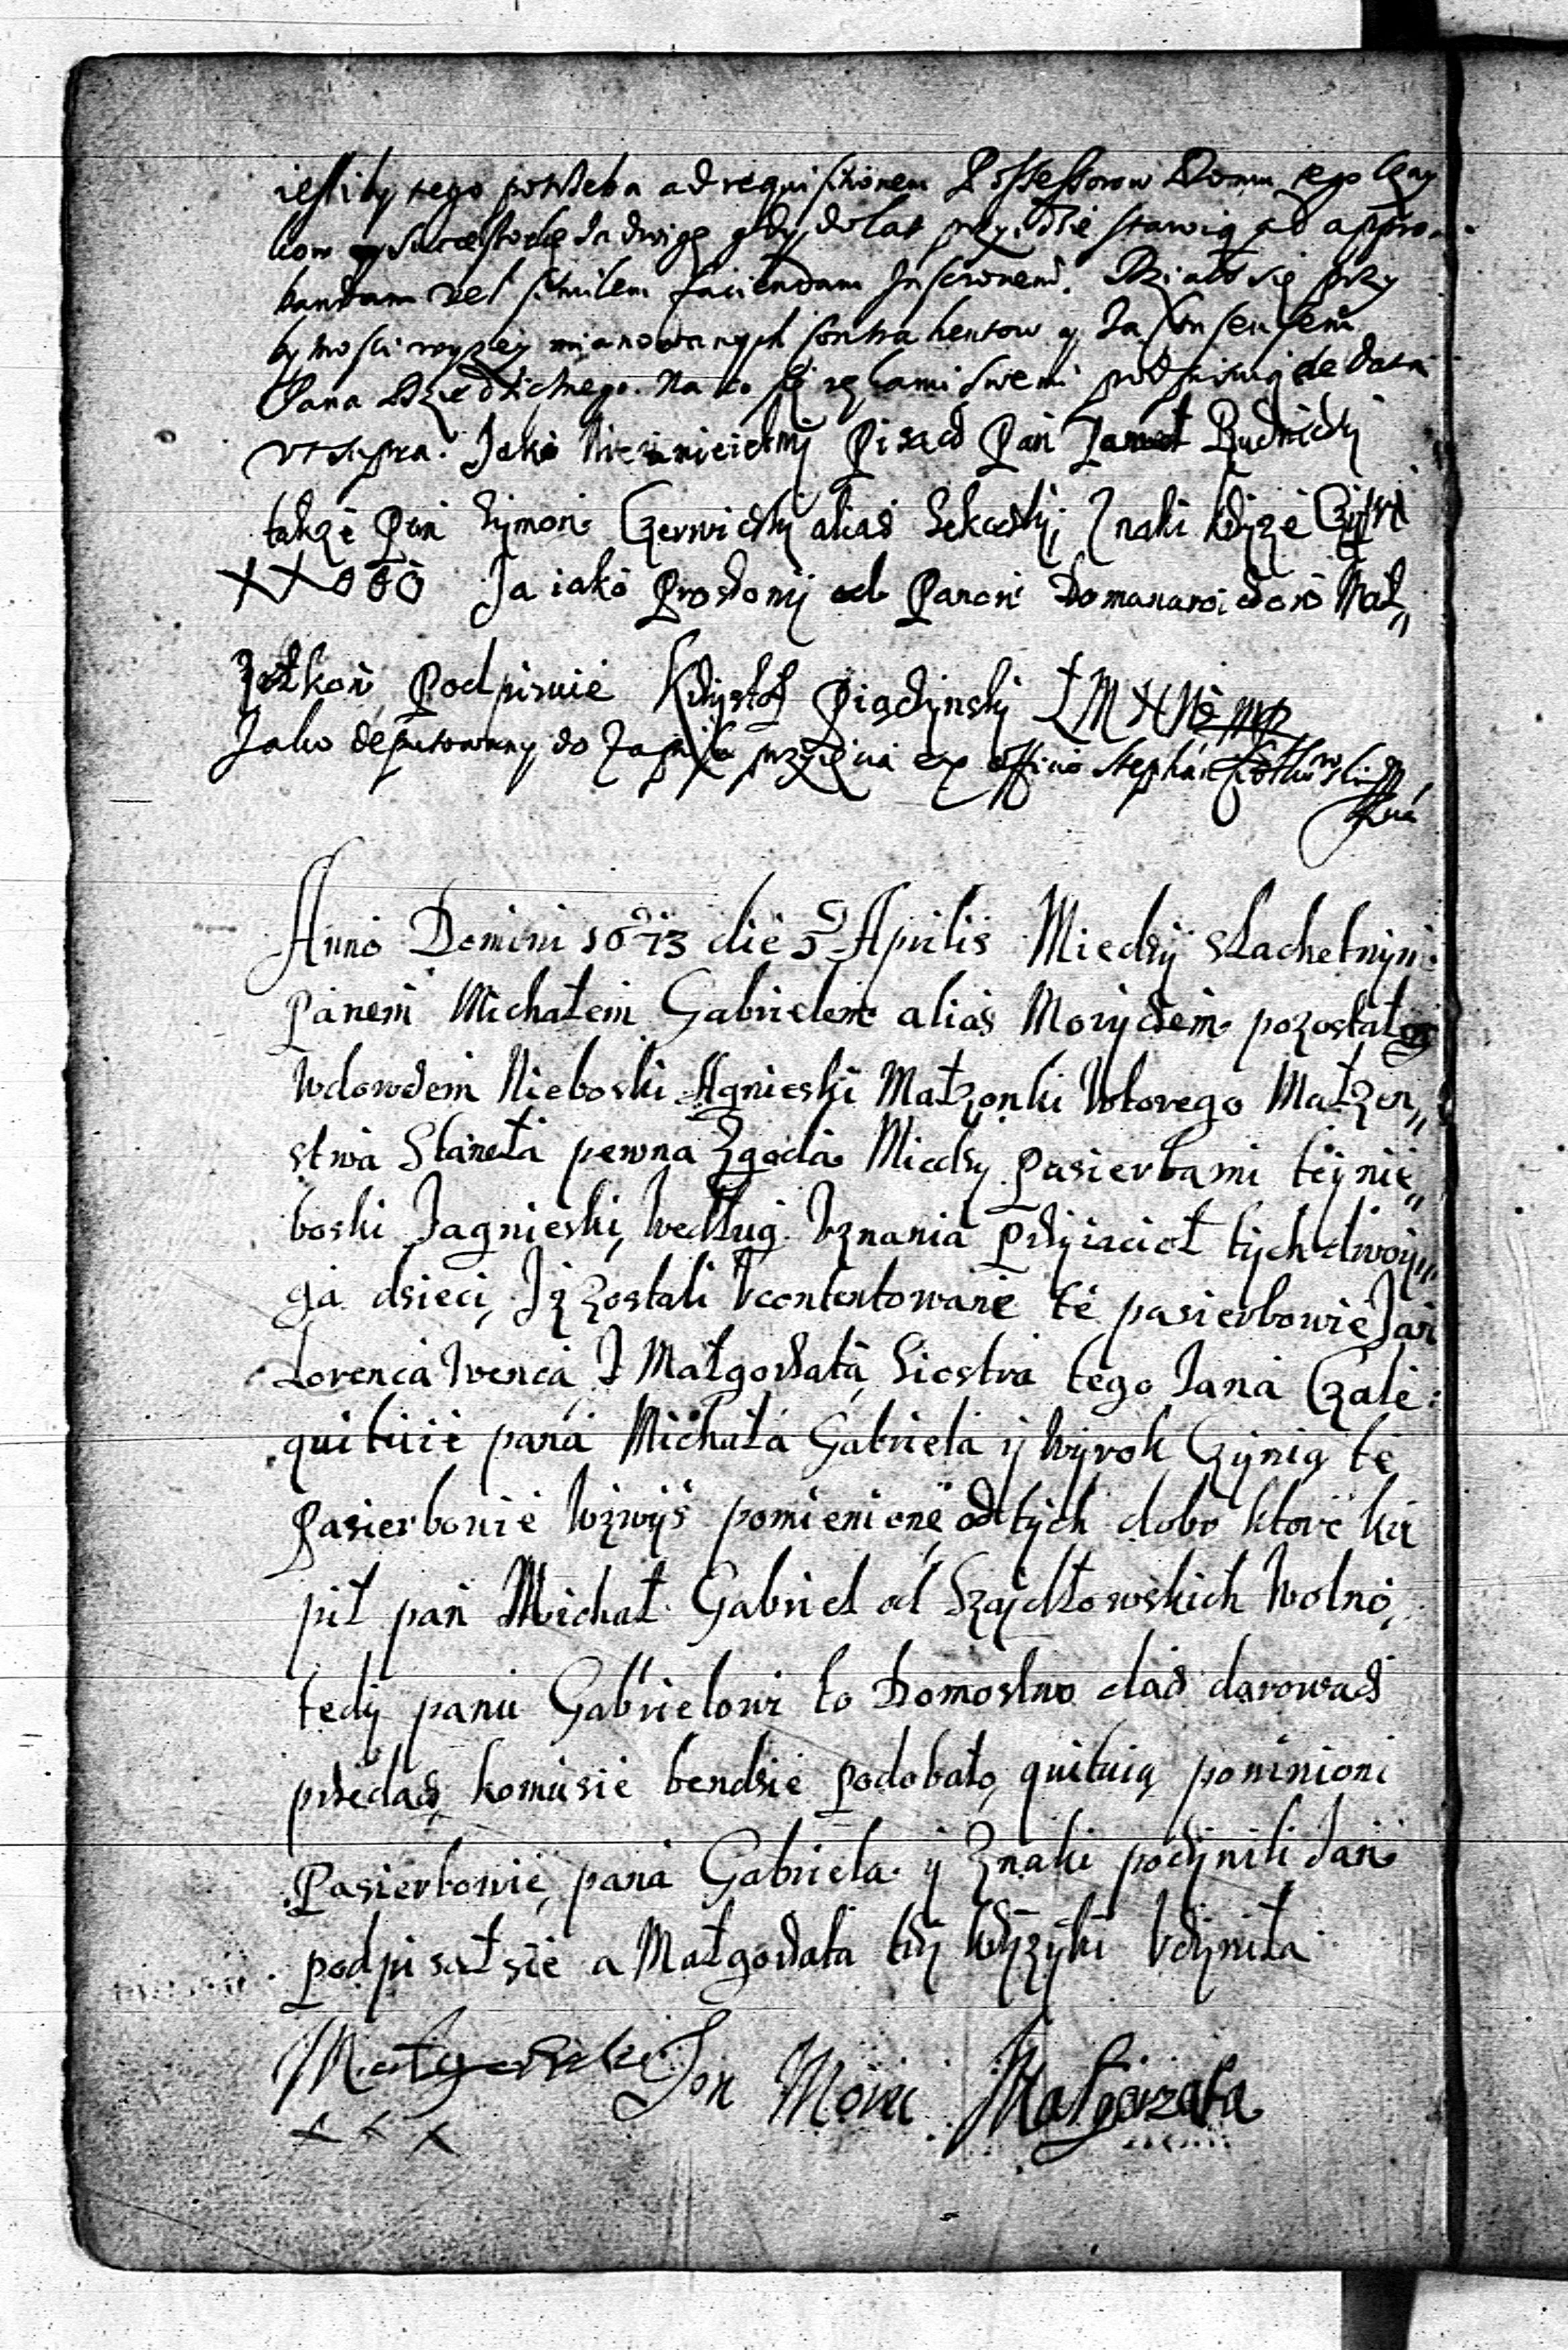 iesliby tego potrzeba ad requisitionem Possessorow Domu tego
kow y Successorkę Jadwigę gdy do lat przyidzie stawią ad appro-
bandam vel similem faciendam Inscriptionem. Działo się przy
bytnosci wyzey mianowanych Contrahentow y Za Consensem
Pana Dziedzicznego. Na co się rękami swemi podpisuią de data
vt supra. Jako Nieumieietnij Pisać Pan Rudnicki
takze Pan Symon Czerwicky alias Sekucky Znaki Krzyze
XXOOO Ja iako Proszony od Panow Mał„
Zonkow Podpisuie Krzystof
Jako deputowany do Zapisu przyięcia ex officio Stephan
Anno Domini 1673 die 5 Aprilis Miedzy Slachetnym
Panem Michałem Gabrielem alias Morycem pozostałym
Wdowcem Nieboski Agnieski Małzonki Ktorego Małzen„
stwa Staneła pewna Zgoda Miedzy Pasierbami tÿ nie„
boski Jagnieski, Według Vznania Przyiacioł tych dwoy„
ga dzieci, Iz zostali Vcontentowane te pasierbowie Jan
Lorenca I Małgorzata Siostra tego Jana Czale:
quituie pana Michała Gabriela ÿ Wyrok Czynią te
Pasierbowie Wzwyś pomienione od tych dobr ktore ku
pił pan Michał Gabriel od Szajdłowskich Wolno,
tedy panu Gabrielowi to Domostwo dać darować
przedać, komusie bendzie podobało, quituią pominioni
Pasierbowie, pana Gabriela y Znaki poczynili Jan
podpisał sie a Małgorzata trzy krzyzyki Vczyniła
Jan Małgorzata
x x x